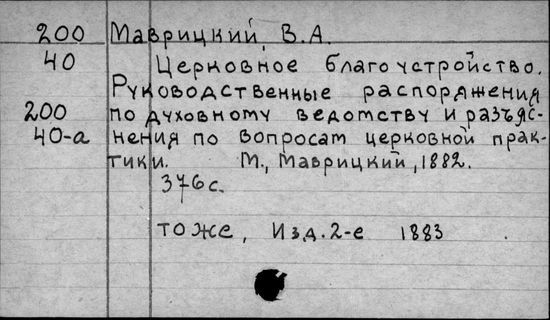 200 Маврицкий, В.А.
40 Церковное благоустройство.
Руководственные распоряжения
200 по духовному ведомству и разъяс-
40-а нения по вопросам церковной прак-
тики. М., Маврицкий, 1882.
376 с.
тоже, Изд. 2-е 1883.